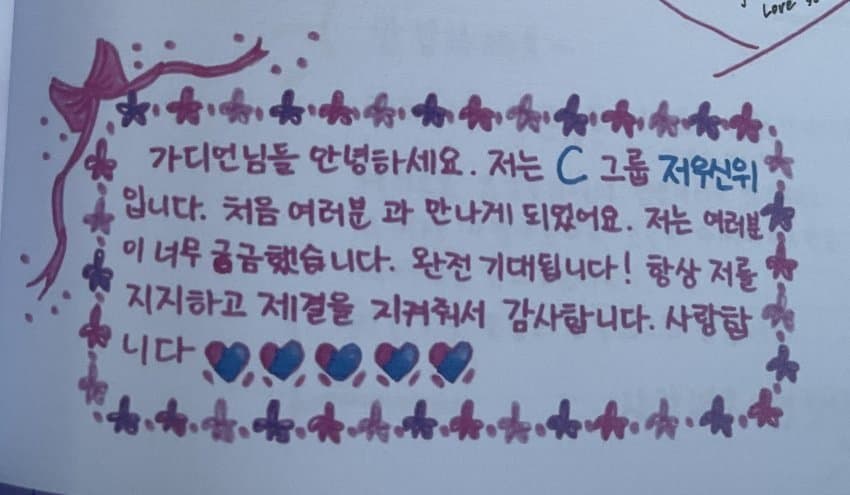 Love
가디언님들 안녕하세요. 저는 C 그룹 저우신위
입니다. 처음 여러분 과 만나게 되었어요. 저는 여러분
이 너무 궁금했습니다. 완전 기대됩니다! 항상 저를
지지하고 제결을 지켜줘서 감사합니다. 사랑합
니다